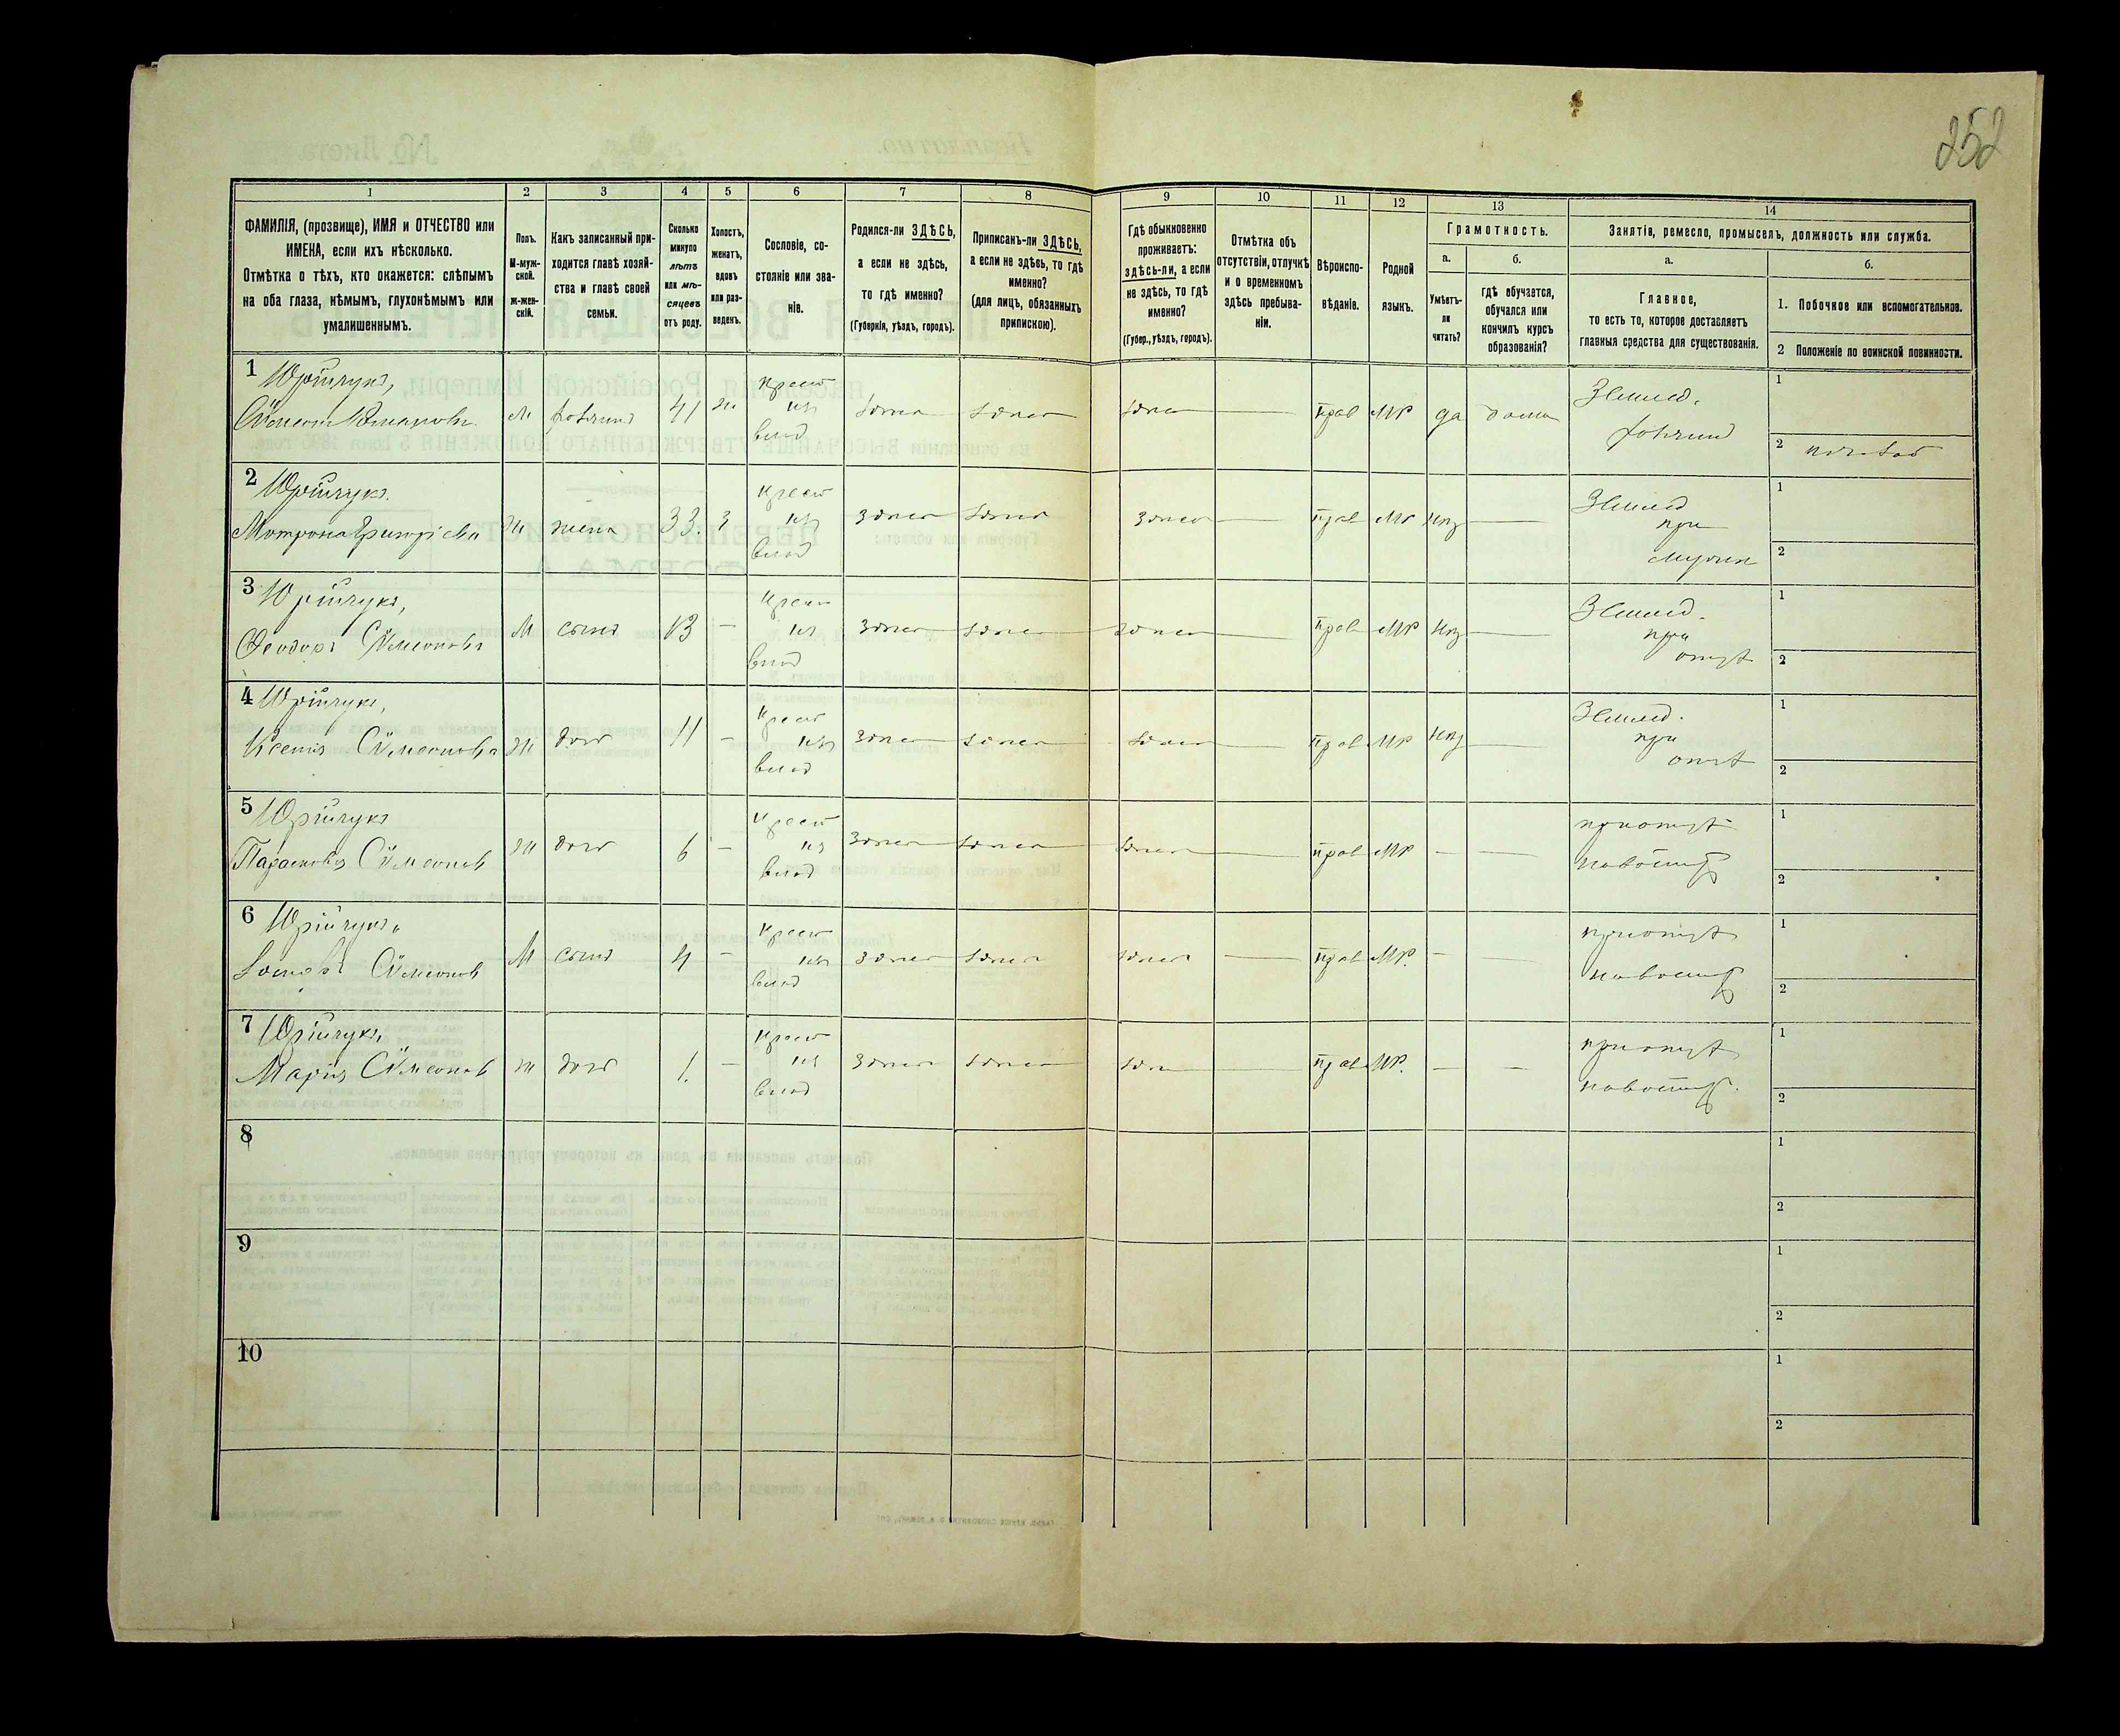 252
1
2
3
4
5
6
7
8
9
10
11
12
13
14
ФАМИЛІЯ, (прозвище), ИМЯ и ОТЧЕСТВО или
ИМЕНА, если ихъ нѣсколько.
Отмѣтка о тѣхъ, кто окажется: слѣпымъ
на оба глаза, нѣмымъ, глухонѣмымъ или
умалишеннымъ.
Полъ.
М-муж-
ской.
ж-жен-
скій.
Какъ записанный при-
ходится главѣ хозяй-
ства и главѣ своей
семьи.
Сколько
минуло
лѣтъ
или мѣ-
сяцевъ
отъ роду.
Холостъ,
женатъ,
вдовъ
или раз-
веденъ.
Сословіе, со-
стояніе или зва-
ніе.
Родился-ли ЗДѢСЬ,
а если не здѣсь,
то гдѣ именно?
(Губернія, уѣздъ, городъ).
Приписанъ-ли ЗДѢСЬ,
а если не здѣсь, то гдѣ
именно?
(для лицъ, обязанныхъ
припискою).
Гдѣ обыкновенно
проживаетъ:
здѣсь-ли, а если
не здѣсь, то гдѣ
именно?
(Губер., уѣздъ, городъ).
Отмѣтка объ
отсутствіи, отлучкѣ
и о временномъ
здѣсь пребыва-
ніи.
Вѣроиспо-
вѣданіе.
Родной
языкъ.
Грамотность.
а.
Умѣетъ-
ли
читать?
б.
гдѣ обучается,
обучался или
кончилъ курсъ
образованія?
Занятіе, ремесло, промыселъ, должность или служба.
а.
Главное,
то есть то, которое доставляетъ
главныя средства для существованія.
б.
1. Побочное или вспомогательное.
2 Положеніе по воинской повинности.
1 Юрійчукъ,
М
41
ж
Крест
из
влад
прав
МР
да
дома
Землед.
1
2
2 Юрійчукъ.
Мотрона Григоріева
ж
жена
33.
з
Крест
из
влад
здѣсь
здѣсь
здѣсь
прав
МР
Землед
при
мужѣ
1
2
3 Юрійчукъ,
Ѳеодоръ Сѵмеоновъ
М
сынъ
13
—
Крест
из
влад
здѣсь
здѣсь
здѣсь
прав
МР
Землед.
при
отцѣ
1
2
4 Юрійчукъ,
Ксенія Сѵмеонова
ж
доч
11
—
Крест
из
влад
здѣсь
здѣсь
здѣсь
прав
МР
Землед.
при
отцѣ
1
2
5 Юрійчукъ
Параскева Сѵмеонов
ж
доч
6
—
Крест
из
влад
здѣсь
здѣсь
здѣсь
прав
МР
—
—
при отцѣ
1
2
6 Юрійчукъ,
Іосифъ Сѵмеонов
М
сынъ
4
—
Крест
из
влад
здѣсь
здѣсь
здѣсь
прав
МР.
—
—
при отцѣ
1
2
7 Юрійчукъ,
Марія Сѵмеонов
ж
доч
1.
—
Крест
из
влад
здѣсь
здѣсь
здѣсь
прав
МР.
—
—
при отцѣ
1
2
8
1
2
9
1
2
10
1
2